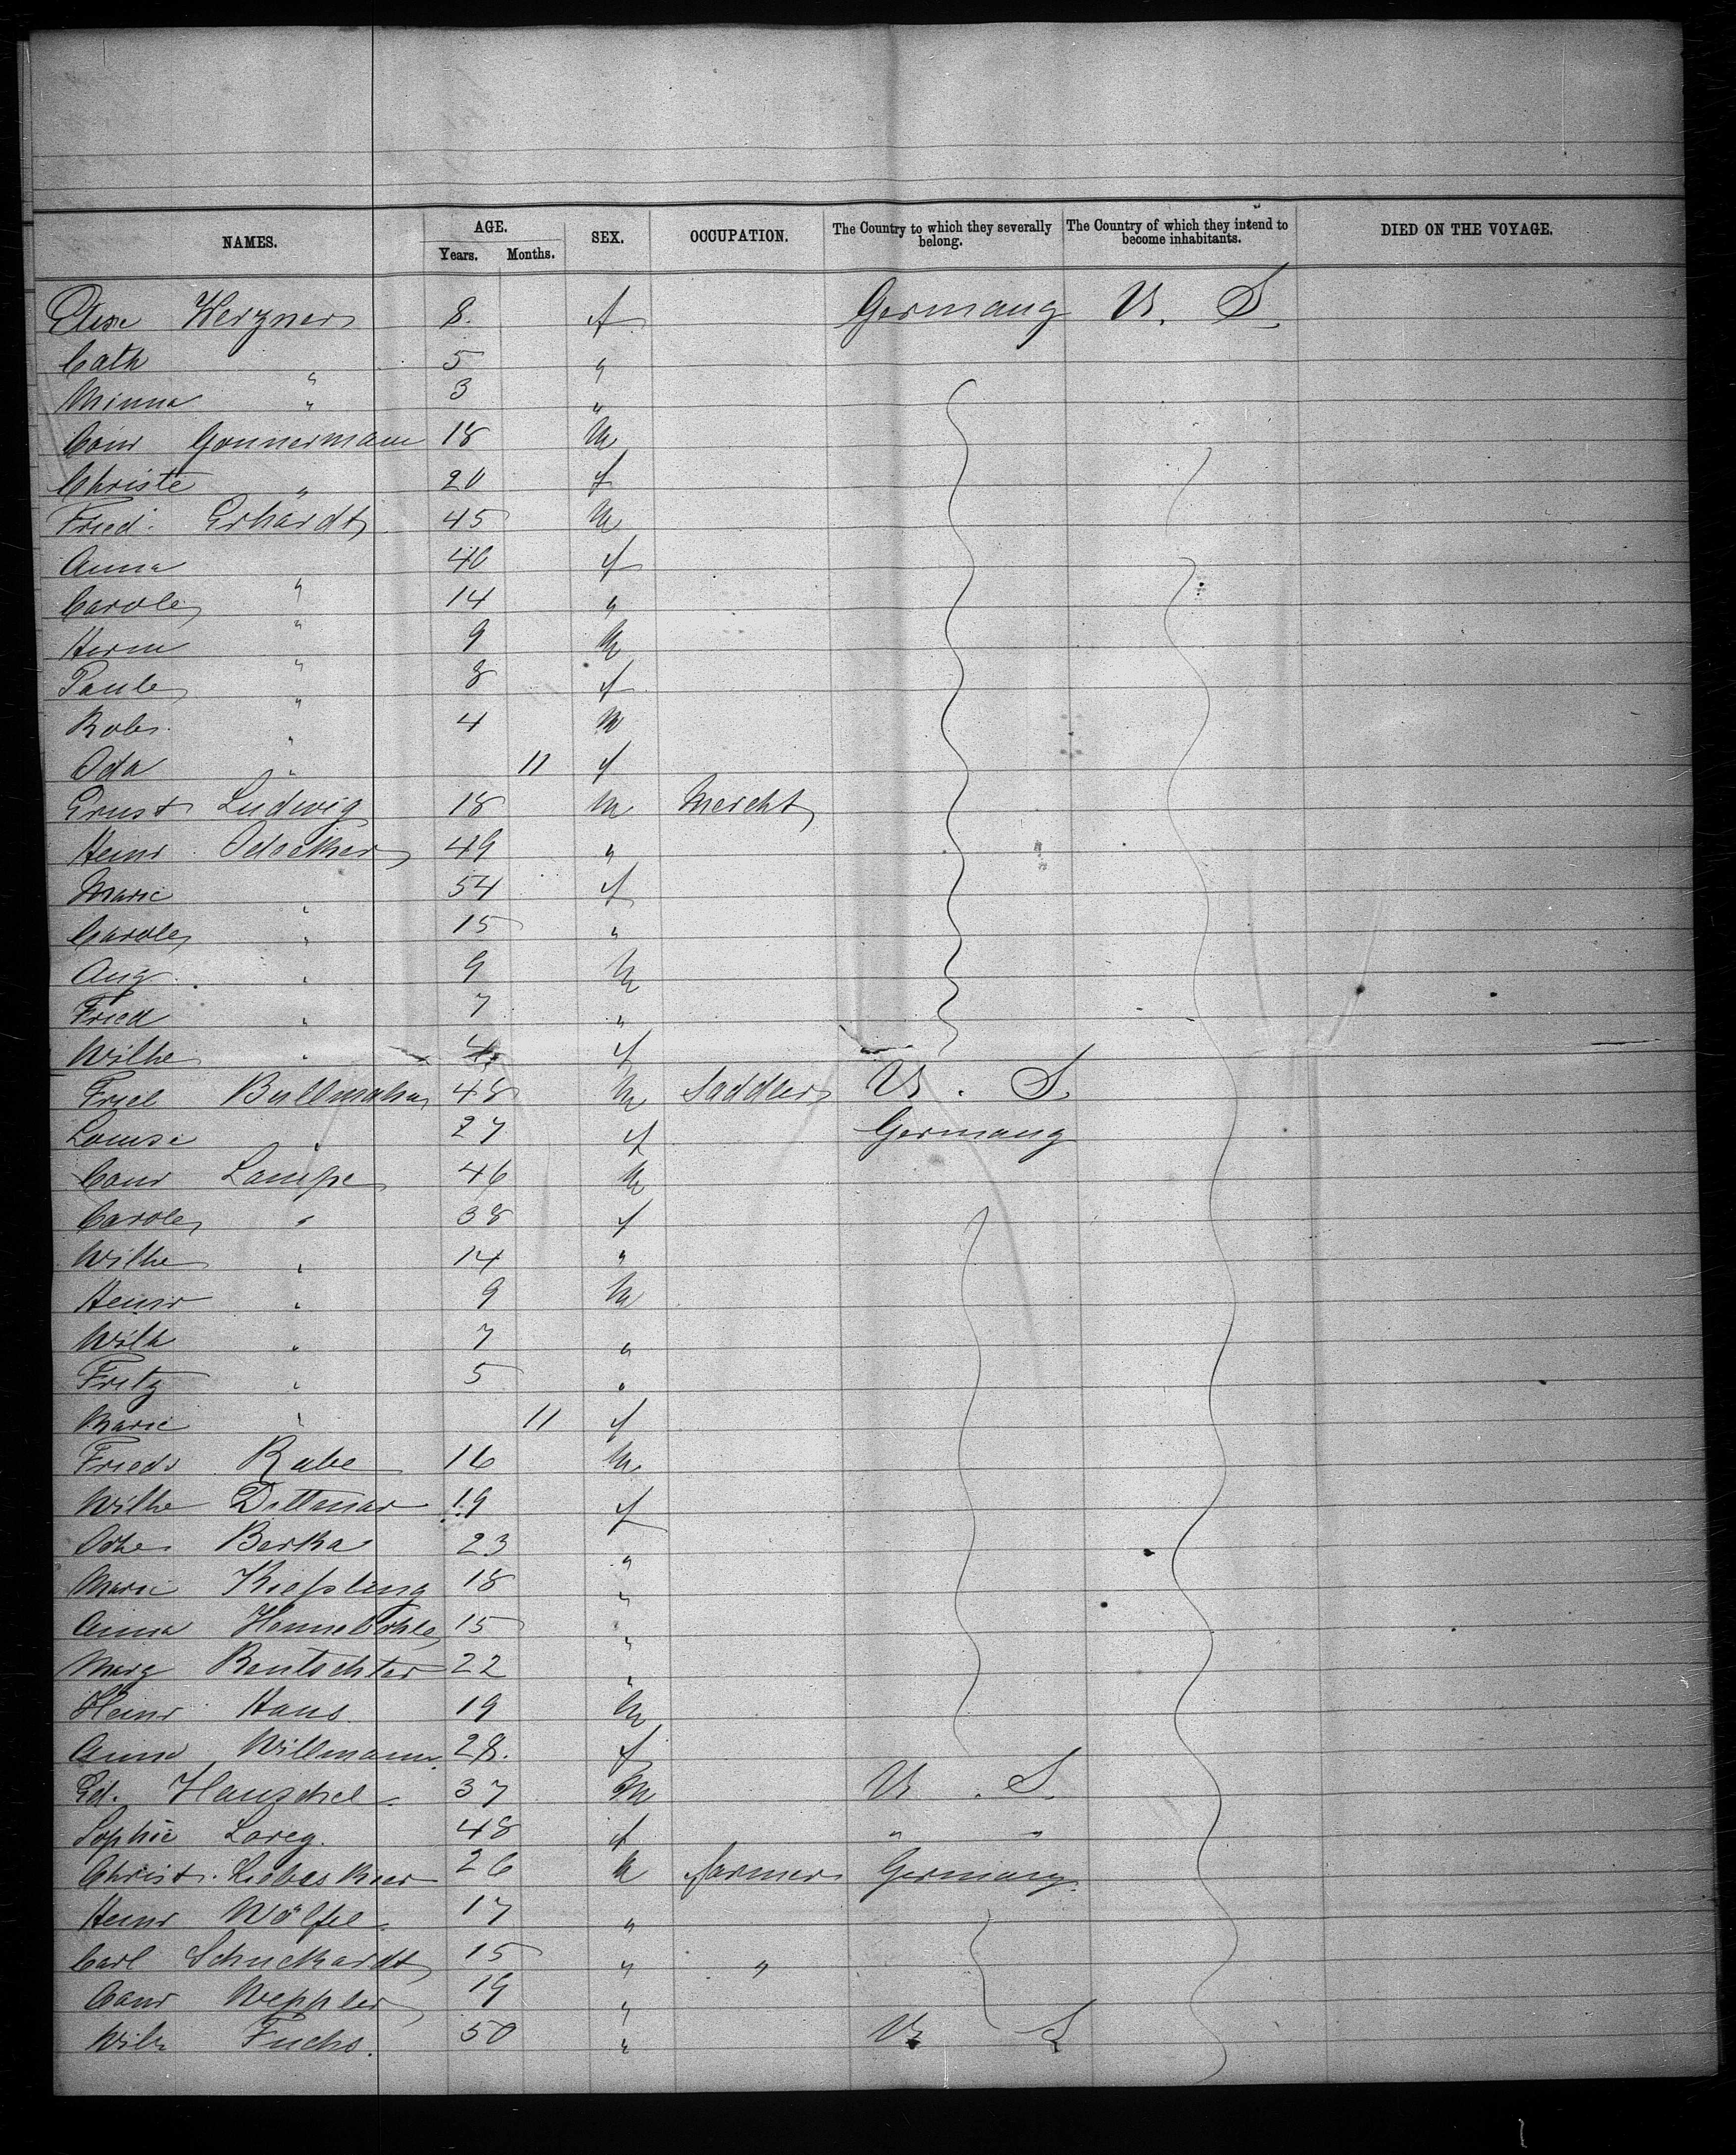 NAMES. AGE. Years. Months. SEX. OCCUPATION. The Country to which they severally belong. The Country of which they intend to become inhabitants. DIED ON THE VOYAGE.
Elise Herzner 8. f Germany U. S.
Cath " 5 "
Minna " 3 "
Conr Gonnermann 18 m
Christe " 20 f
Fried. Erhardt 45 m
Anna " 40 f
Carole " 14 "
Herm " 9 m
Paule " 8 f
Rob. " 4 m
Ida " 11 f
Ernst Ludwig 18 m Mercht
Heinr 49 "
Marie " 54 f
Carole " 15 "
Aug. " 9 m
Fried " 7 "
Wilhe " 4 f
Fried Bullmahn 48 m Saddler U. S.
Louise " 27 f Germany
Conr Lampe 46 m
Carole " 38 f
Wilhe " 14 "
Heinr " 9 m
Wilh " 7 "
Fritz " 5 "
Marie " 11 f
Friedr Rabe 16 m
Wilhe Dittmar 19 f
Berka 23 "
Marie Kießling 18 "
Anna 15 "
Marg 22 "
Heinr Haus 19 m
Anna Willmann 28. f
Ed. Hauschel 37 m U. S.
Sophie Loreg. 48 f " "
Christ. 26 m farmer Germany
Heinr Wölfel 17 "
Carl Schuchardt 15 " "
Conr Weppler 19 "
Wilh Fuchs. 50 " U S